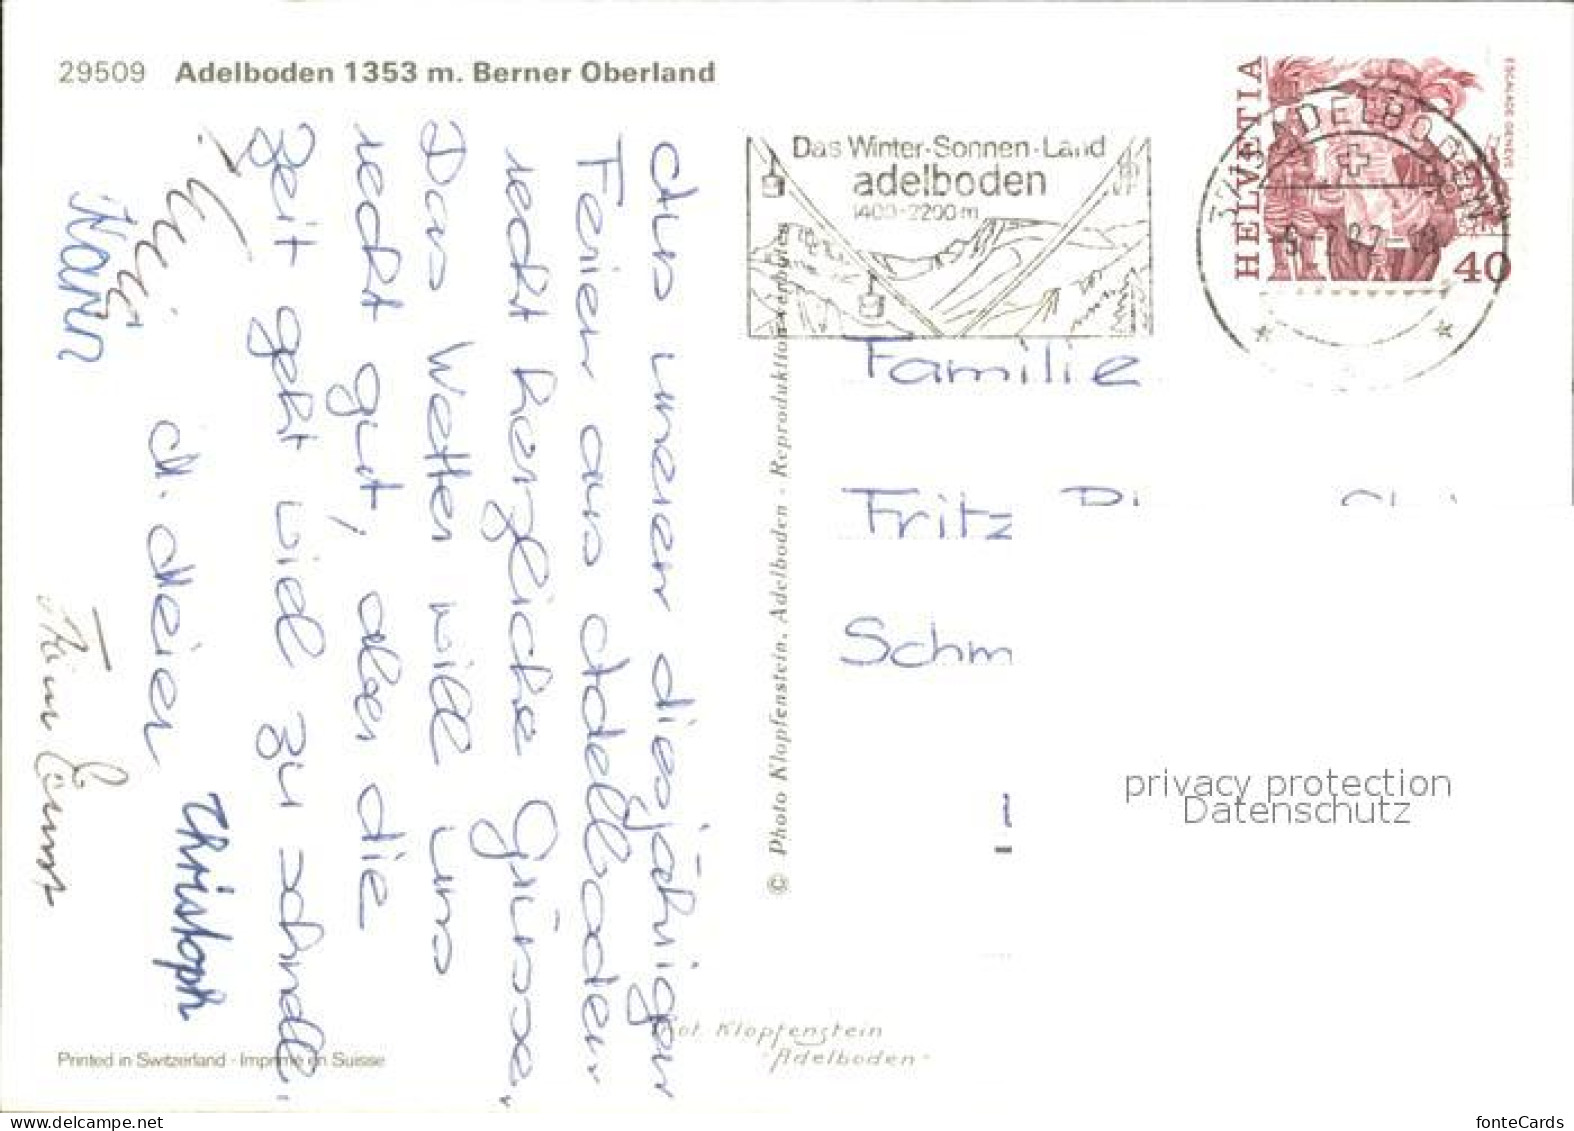 29509 Adelboden 1353 m. Berner Oberland
Aus unseren diesjährigen
Ferien aus Adelboden
recht herzliche Grüsse.
Das Wetter will uns
recht gut, aber die
Zeit geht viel zu schnell.
A. Meier
Karin
Christoph
Das Winter-Sonnen-Land
adelboden
1400-2200 m
HELVETIA
ESCALADE GENÈVE
40
3715 ADELBODEN
Familie
Fritz
Schm
© Photo Klopfenstein, Adelboden - Reproduktion verboten
privacy protection
Datenschutz
Phot. Klopfenstein
"Adelboden"
Printed in Switzerland - Imprimé en Suisse
www.delcampe.net
fonteCards